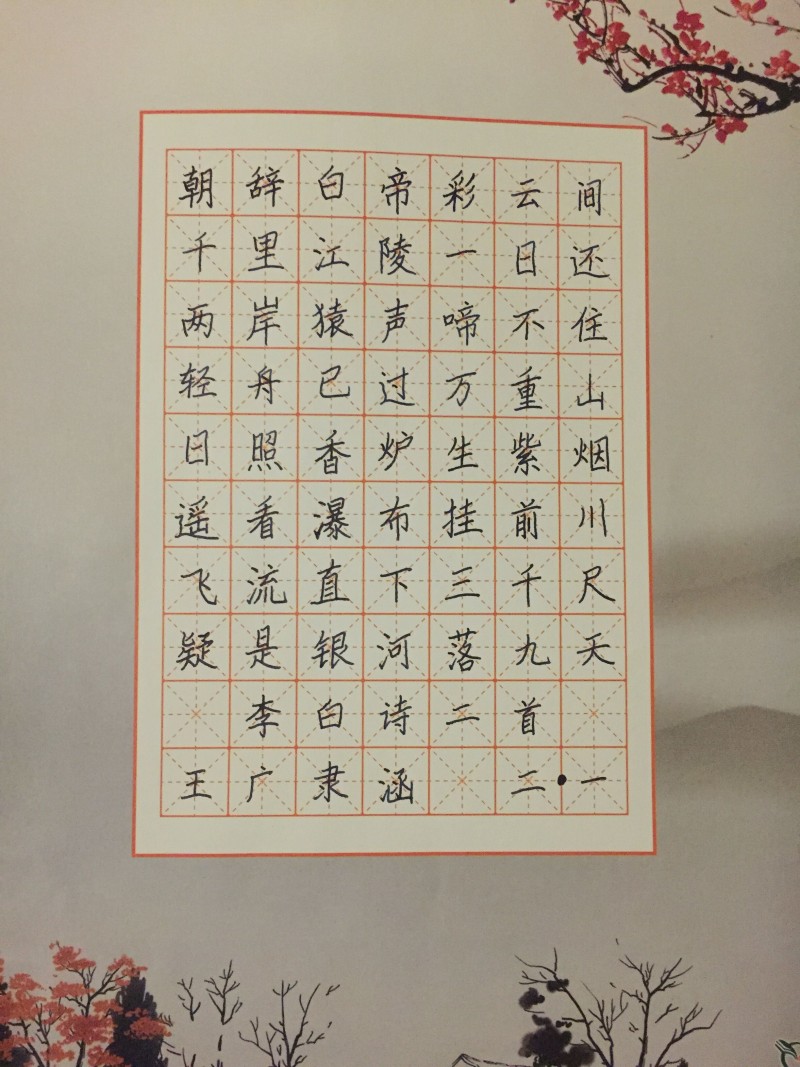 朝辞白帝彩云间
千里江陵一日还
两岸猿声啼不住
轻舟已过万重山
日照香炉生紫烟
遥看瀑布挂前川
飞流直下三千尺
疑是银河落九天
李白诗二首
王广隶涵 二·一